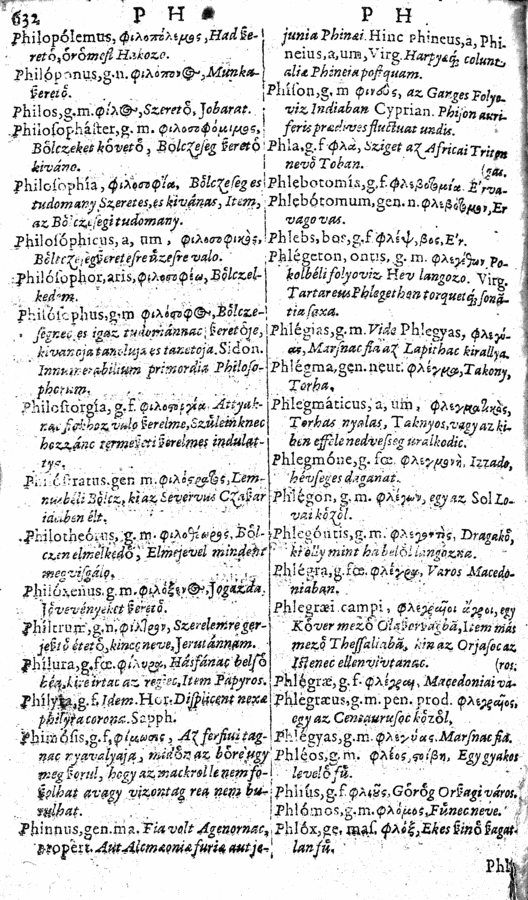 632 P H
Philopólemus, φιλοπόλεμος, Had ſze-
retö, örömeſt Hakozo.
Philóponus, g.n. φιλόπονος, Munka-
ſzeretö.
Philos, g.m. φίλος, Szeretö, Jobarat.
Philoſopháſter, g. m. φιλοσοφόμιμος,
Bölczeket követö, Bölczeſeg ſzeretö
kiváno.
Philoſophía, φιλοσοφία, Bölczeſeg es
tudomany Szeretes, es kivánas, Item,
az Bölczeſegi tudomany.
Philoſóphicus, a, um, φιλοσοφικὸς,
valo.
Philóſophor, aris, φιλοσοφέω, Bölczel-
kedem.
Philóſophus, g.m φιλόσοφος, Bölcze-
ſegnec es igaz tudománnac ſzeretöje,
kivanoja tanoluja es tanetoja. Sidon.
Innumerabilium primordia Philoſo-
phorum.
Philoſtorgía, g.f. φιλοστοργία. Attyak-
nac fiakhoz valo ſzerelme, Szüleinknec
hozzánc termeſzeti ſzerelmes indulat-
tya.
Philóſtratus. gen m. φιλόστρατος, Lem-
nusbéli Bölcz, ki az Severvus Czaſzar
idaiben élt.
Philotheórus, g. m. φιλοθέωρος, Böl-
czen elmélkedö, Elmejevel mindent
megviſgálo.
Philóxenus, g.m. φιλόξενος, Jogazda,
Jövevényeket ſzeretö.
Philtrum, g.n. φίλτρον, Szerelemre ger-
jeſztö étetö, kincz neve, Jerutánnam.
Philura, g.fœ. φιλύρα, Hásfánac belſö
héa, kire irtac az regiec, Item Papyros.
Philyra, g.f. Idem. Hor. Diſplicent nexæ
philyra coronæ. Sepph.
Phimóſis, g.f, φίμωσις, Az ferfiui tag-
nac nyavalyaja, midön az böre ugy
meg ſzorul, hogy az mackrolle nem fo-
ſzolhat avagy vizontag rea nem bu-
rulhat.
Phinnus, gen. ma. Fia volt Agenornac,
Propert. Aut Alcmæoniæ furiæ aut je-
P H
junia Phinei. Hinc phineus, a, Phi-
neius, a, um, Virg. Harpyæq́; colunt
aliæ Phineia poſtquam.
Phiſon, g.m az Ganges Folyo-
viz Indiaban Cyprian. Phiſon auri-
feris prædives fluctuat undis.
Phla, g.f φλὰ, Sziget az Africai Triton
nevö Toban. (gas.
Phlebotomía, g.f φλεβοτομία. E'rva-
Phlebótomum, gen. n. φλεβοτόμον, Er
vago vas.
Phlebs, bos, g.f φλέψ, βος, E'r.
Phlégeton, ontis, g. m. φλεγέθων, Po-
kolbéli folyoviz. Hev langozo. Virg.
Tartareus Phlegethon torquetq́; ſonā-
tia ſaxa.
Phlégias, g.m. Vide Phlegyas, φλεγύ-
ας, Marſnac fia az Lapithac kirallya.
Phlégma, gen. neut. φλέγμα, Takony,
Torha.
Phlegmáticus, a, um, φλεγματικὸς,
Torhas nyalas, Taknyos, vagy az ki-
ben effcle nedveſseg uralkodic.
Phlegmóne, g.fœ. φλεγμονὴ. Izzado,
hévſeges daganat.
Phlégon, g.m. φλέγων, egy az Sol Lo-
vai közöl.
Phlegóntis, g.m. Dragakö,
ki olly mint ha belöl langozna.
Phlégra, g.fœ. φλέγρα, Varos Macedo-
niaban.
Phlegræi campi, φλεγραῖοι ἄγροι, egy
Köver mezö Olaſzorſzagbā, Item más
mezö Theſſaliabā, kin az Orjaſoc az
Iſtenec ellen vivtanac. (ros:
Phlégræ, g.f. φλέγραι, Macedoniai va-
Phlegræus, g.m. pen. prod. φλεγραῖος,
egy az Centauruſoc közöl.
Phlégyas, g.m. φλεγύας. Marſnac fia.
Phléos, g.m. φλέος, ſtoίβη, Egy gyakos
levelö fü.
Phlíus, g.f φλιοῦς, Görög Orſzagi város.
Phlómos, g.m. φλόμος, Fünec neve.
Phlóx, ge. maſ. φλόξ, Ekes ſzinö ſzagat-
lan fü.
Phl